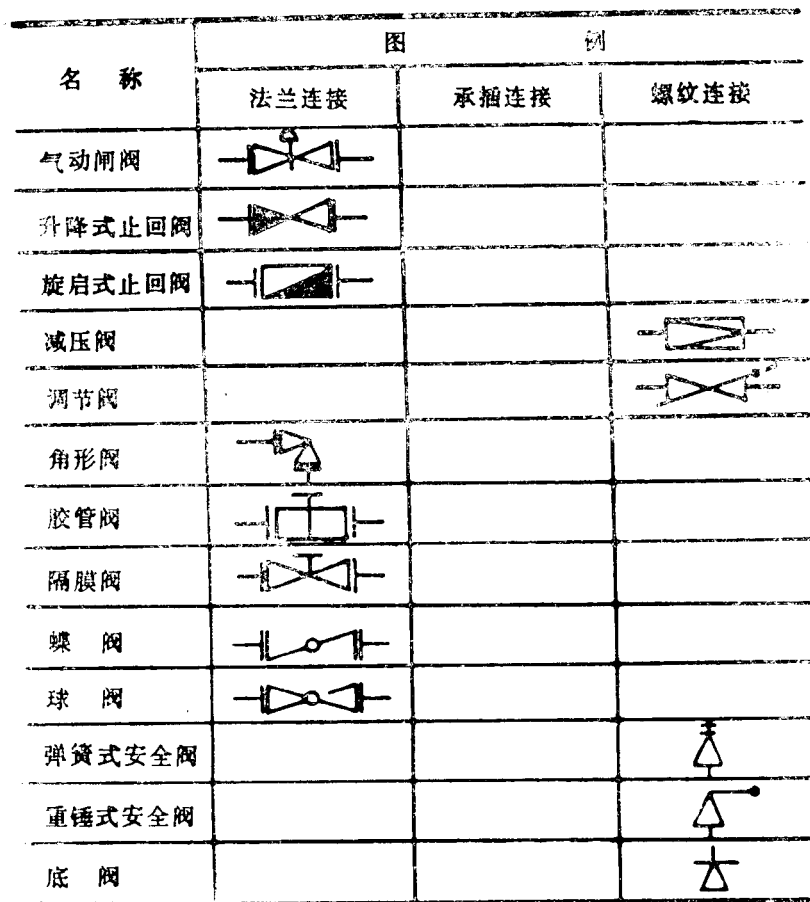 图 例
名 称
法兰连接 承插连接 螺纹连接
气动闸阀
升降式止回阀
旋启式止回阀
减压阀
调节阀
角形阀
胶管阀
隔膜阀
蝶 阀
球 阀
弹簧式安全阀
重锤式安全阀
底 阀